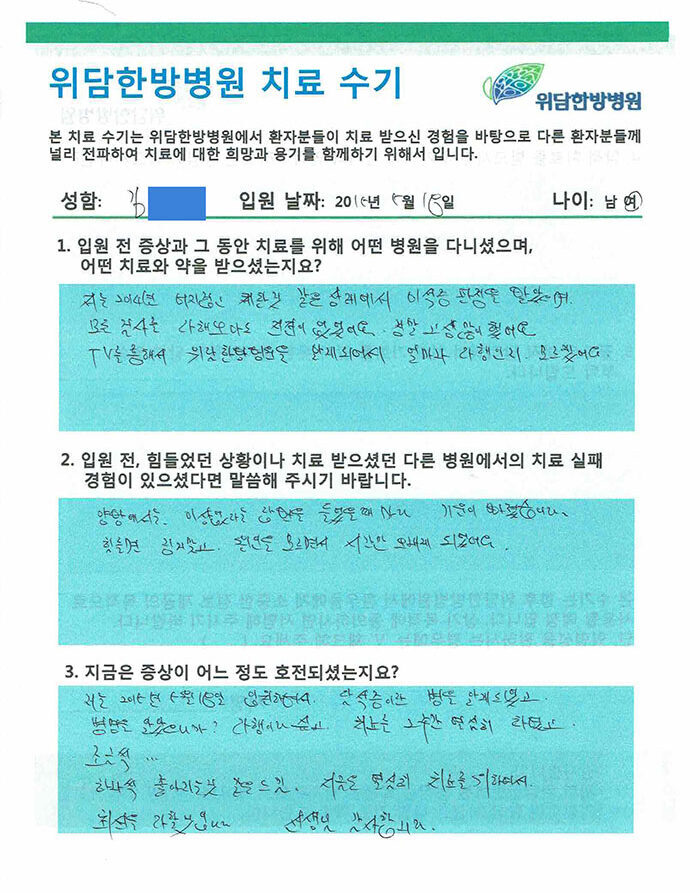 위담한방병원 치료 수기
위담한방병원
본 치료 수기는 위담한방병원에서 환자분들이 치료 받으신 경험을 바탕으로 다른 환자분들께
널리 전파하여 치료에 대한 희망과 용기를 함께하기 위해서 입니다.
성함: 김 입원 날짜: 201 년 월 일 나이: 남 여
1. 입원 전 증상과 그 동안 치료를 위해 어떤 병원을 다니셨으며,
어떤 치료와 약을 받으셨는지요?
저는 2014년 같은 이석증 판정을 받았으며.
모든 검사를 다해보아도 없었어요. 정말 고생많이 했어요
TV를 통해서 위담한방병원을 알게되어서 얼마나 다행인지 모르겠어요
2. 입원 전, 힘들었던 상황이나 치료 받으셨던 다른 병원에서의 치료 실패
경험이 있으셨다면 말씀해 주시기 바랍니다.
양방에서는 이상없다는 들었을때 기운이 빠졌습니다.
힘들면 원인을 모르면서 시간만 오래게 되었어요.
3. 지금은 증상이 어느 정도 호전되셨는지요?
저는 입원하여서. 담적증이란 병을 알게되었고.
병명을 알았으니까? 다행이다 싶고. 치료를 2주간 열심히 하였고.
조금씩 ...
하나씩 좋아지는것 같은 느낌. 지금은 열심히 치료를 하여서.
최선을 다할겁니다 선생님 감사합니다.